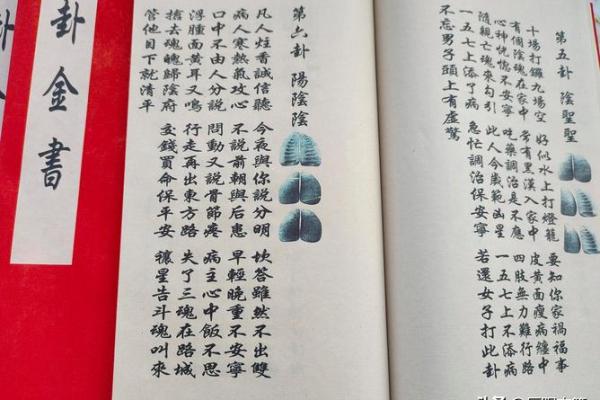 第五卦 陰聖聖
十場打鑼九場空 好似水上打燈籠 要知你家禍福事
有個陰魂在家中 常有黑漢入家中 皮黄面瘦病纏中
心神恍惚不安寧 吃藥調治是不應 四肢無力難行路
隨親亡魂來勾引 此人今歲範凶星 一五七上不添病
一五七上添了病 急忙調治保安寧 若還女子打此卦
不忘男子頭上有虛驚
第六卦 陽陰陰
凡人炷香誠信聽 今夜與你說分明 坎答雖然不出雙
病人寒熱氣攻心 不說前朝與后患 早輕晚重不安寧
口中不由人分說 問動又說骨節疼 病主心中飯不思
浮腫面黄耳又鳴 行走再出東方路 失了三魂在路城
捨去魂魄歸陰府 交錢買命保平安 禳星告斗魂叫來
管他目下就清平
卦金書
卦